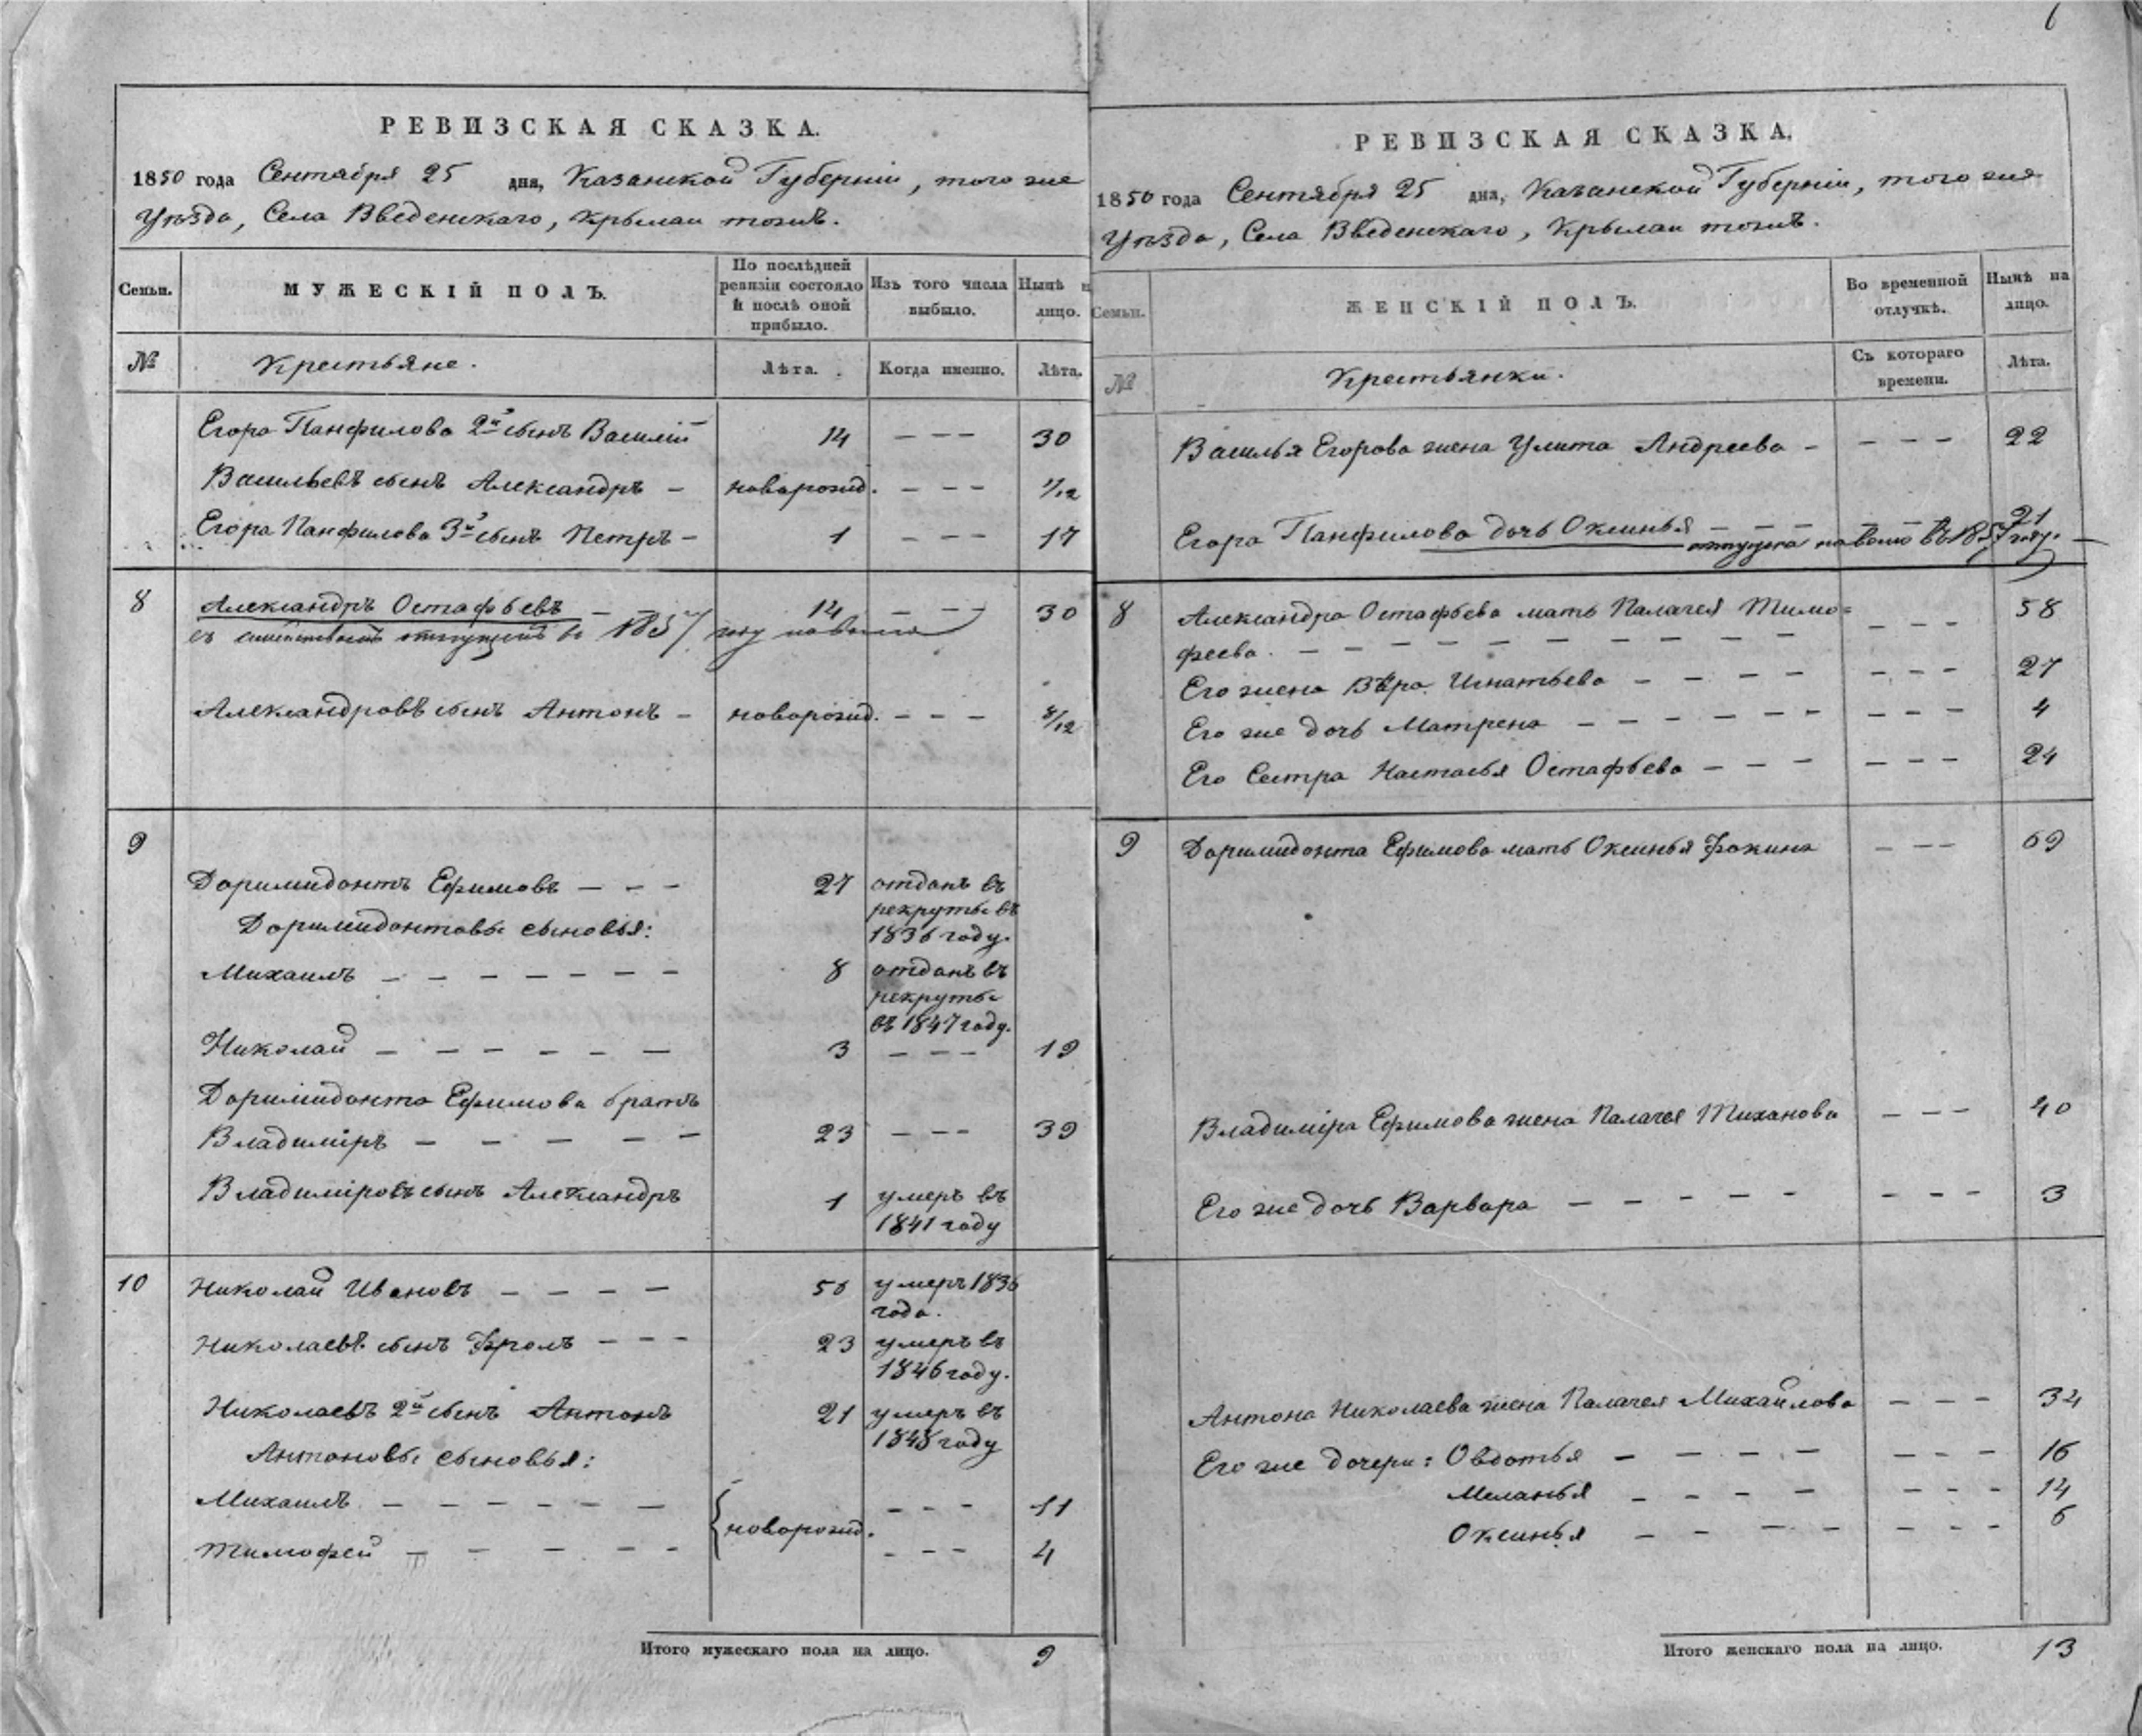 6
РЕВИЗСКАЯ СКАЗКА.
1850 года Сентября 25 дня, Казанской Губерніи, того же
Уѣзда, Села Введенскаго, Крылаи тожъ.
Семьи. МУЖЕСКІЙ ПОЛЪ. По послѣдней ревизіи состояло и послѣ оной прибыло. Изъ того числа выбыло. Нынѣ н лицо.
№ Крестьяне. Лѣта. Когда именно. Лѣта.
Егора Панфилова 2й сынъ Василій 14 – – – 30
Васильевъ сынъ Александръ – новорожд. – – – 1/12
Егора Панфилова 3й сынъ Петръ – 1 – – – 17
8 Александръ Остафьевъ – – 14 – – – 30
съ семействомъ отпущенъ въ 1857 году на волю
Александровъ сынъ Антонъ – новорожд. – – – 8/12
9
Доримидонтъ Ефимовъ – – – 27 отданъ въ
рекруты въ
Доримидонтовы сыновья: 1836 году.
Михаилъ – – – – – – – 8 отданъ въ
рекруты
въ 1847 году.
Николай – – – – – – 3 – – – 19
Доримидонта Ефимова братъ
Владиміръ – – – – – 23 – – – 39
Владиміровъ сынъ Александръ 1 умеръ въ
1841 году
10 Николай Ивановъ – – – – 56 умеръ 1836
года.
Николаевъ сынъ Фролъ – – – 23 умеръ въ
1846 году.
Николаевъ 2й сынъ Антонъ 21 умеръ въ
1848 году
Антоновы сыновья:
Михаилъ – – – – – – новорожд. – – – 11
Тимофей – – – – – – – – 4
Итого мужескаго пола на лицо. 9
РЕВИЗСКАЯ СКАЗКА.
1850 года Сентября 25 дня, Казанской Губерніи, того же
Уѣзда, Села Введенскаго, Крылаи тожъ.
Семьи. ЖЕНСКІЙ ПОЛЪ. Во временной отлучкѣ. Нынѣ на лицо.
№ Крестьянки. Съ котораго времени. Лѣта.
Василья Егорова жена Улита Андреева – – – – 22
Егора Панфилова дочь Оксинья – – – – – 21
отпущена на волю въ 1857 году.
8 Александра Остафьева мать Палагея Тимо= – – – 58
феева. – – – – – – – – –
Его жена Вѣра Игнатьева – – – – – – – 27
Его же дочь Матрена – – – – – – – – – 4
Его Сестра Настасья Остафьева – – – – – – 24
9 Доримидонта Ефимова мать Оксинья Фокина – – – 69
Владиміра Ефимова жена Палагея Тиханова – – – 40
Его же дочь Варвара – – – – – – – – 3
Антона Николаева жена Палагея Михайлова – – – 34
Его же дочери: Овдотья – – – – – – – – 16
Меланья – – – – – – – 14
Оксинья – – – – – – – – 6
Итого женскаго пола на лицо. 13